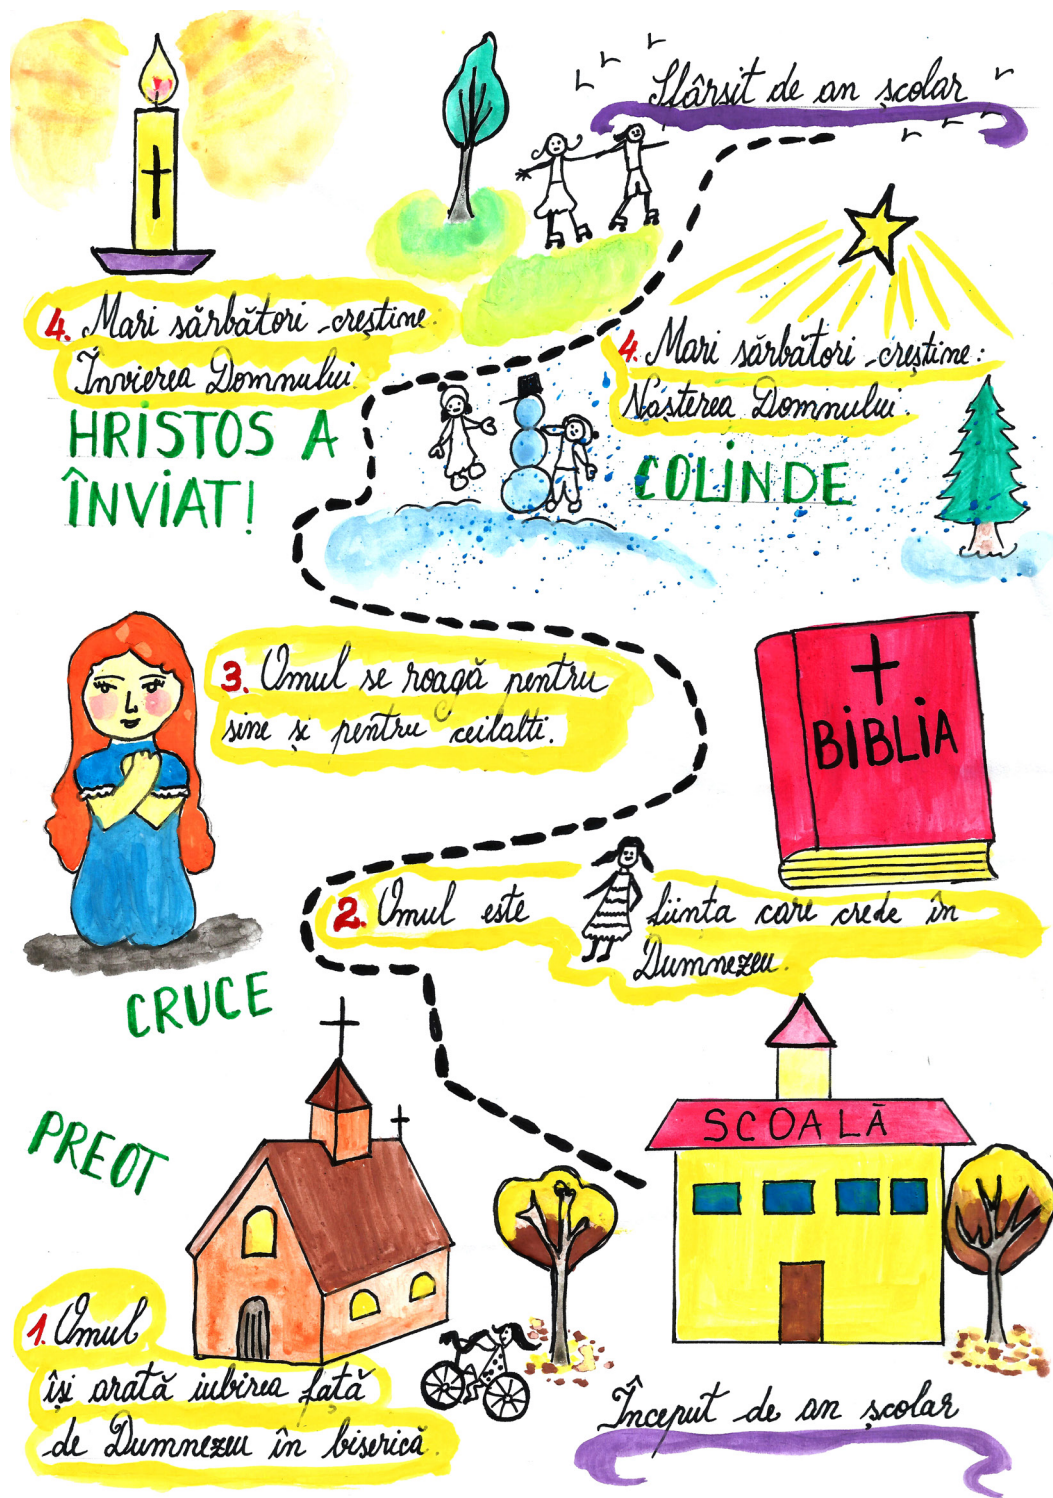 Sfârsit de an școlar
4. Mari sărbători creștine:
Învierea Domnului.
HRISTOS A
ÎNVIAT!
4. Mari sărbători creștine:
Nașterea Domnului.
COLINDE
3. Omul se roagă pentru
sine și pentru ceilalti.
BIBLIA
2. Omul este ființa care crede în
Dumnezeu.
CRUCE
PREOT
SCOALĂ
1. Omul
își arată iubirea față
de Dumnezeu în biserică.
Început de an școlar